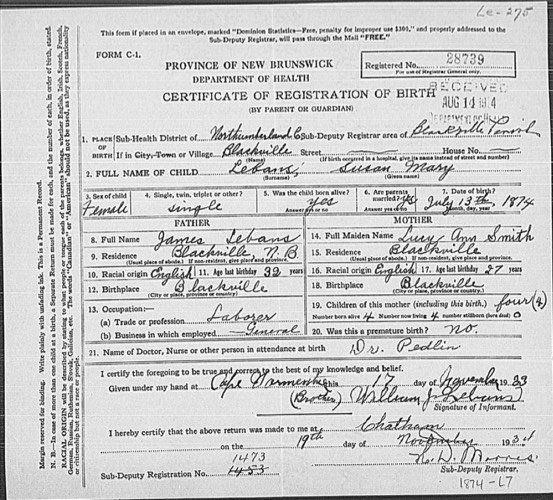 Le-275
This form if placed in an envelope, marked "Dominion Statistics—Free, penalty for improper use $300," and properly addressed to the
Sub-Deputy Registrar, will pass through the Mail "FREE."
FORM C-1.
PROVINCE OF NEW BRUNSWICK
DEPARTMENT OF HEALTH
Registered No. 28739
For use of Registrar General only.
CERTIFICATE OF REGISTRATION OF BIRTH
(BY PARENT OR GUARDIAN)
RECEIVED
AUG 14
1. PLACE OF BIRTH Sub-Health District of Northumberland Co Sub-Deputy Registrar area of Blackville Parish
If in City, Town or Village Blackville Street House No.
(Name) (If birth occurred in a hospital, give its name instead of street and number)
2. FULL NAME OF CHILD Lebans, Susan Mary
(Surname) (Given name)
3. Sex of child Female
4. Single, twin, triplet or other? single
5. Was the child born alive? yes
Answer yes or no
6. Are parents married? yes
Answer yes or no
7. Date of birth? July 13th, 1874
Month, day, year
FATHER
8. Full Name James Lebans
9. Residence Blackville N.B.
(Usual place of abode.) If non-resident, give place and province.
10. Racial origin English 11. Age last birthday 32 years
12. Birthplace Blackville
(City or place, province or country)
13. Occupation:—
(a) Trade or profession Laborer
(b) Business in which employed General
MOTHER
14. Full Maiden Name Lucy Ann Smith
15. Residence Blackville
(Usual place of abode.) If non-resident, give place and province.
16. Racial origin English 17. Age last birthday 27 years
18. Birthplace Blackville
(City or place, province or country.)
19. Children of this mother (including this birth.) four (4)
Number born alive 4 Number now living 4 number stillborn (born dead) 0
20. Was this a premature birth? no.
21. Name of Doctor, Nurse or other person in attendance at birth Dr. Pedlin
I certify the foregoing to be true and correct to the best of my knowledge and belief.
Given under my hand at Cape this 17 day of November 1933
(Brother) William J. Lebans
Signature of Informant.
I hereby certify that above return was made to me at Chatham
on the 19th day of November 193
1473
Sub-Deputy Registration No. 1453
H. D. Morris
Sub-Deputy Registrar.
1874-L7
Margin reserved for binding. Write plainly with unfading ink. This is a Permanent Record.
N. B.—In case of more than one child at a birth, a Separate Return must be made for each, and the number of each, in order of birth, stated.
RACIAL ORIGIN will be described by stating to what people or tongue each of the parents belongs, whether English, Irish, Scotch, French,
or citizenship but not a race or people.